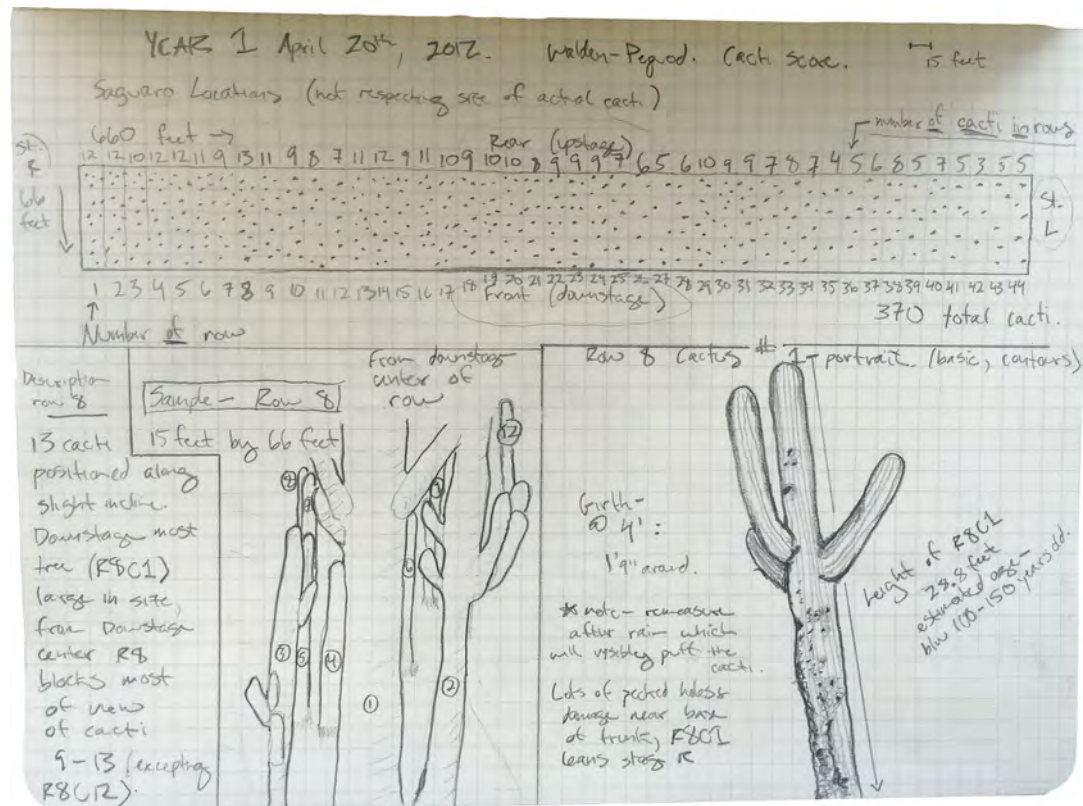 YEAR 1 April 20th, 2012. Walden-Pequod. Cacti Score. 15 feet
Saguaro Locations (not respecting size of actual cacti)
660 feet → Rear (upstage) number of cacti in rows
12 12 10 12 12 11 9 13 11 9 8 7 11 12 9 11 10 9 10 10 8 9 9 9 7 6 5 6 10 9 9 7 8 7 4 5 6 8 5 7 5 3 5 5
St. R
66 feet
St. L
1 2 3 4 5 6 7 8 9 10 11 12 13 14 15 16 17 18 19 20 21 22 23 24 25 26 27 28 29 30 31 32 33 34 35 36 37 38 39 40 41 42 43 44
Front (downstage)
370 total cacti.
Number of row
Description row 8
13 cacti
positioned along
slight incline.
Downstage most
tree (R8C1)
large in size,
from Downstage
center R8
blocks most
of view
of cacti
9-13 (excepting
R8C12).
Sample - Row 8
15 feet by 66 feet
From downstage
center of
row
8
12
7
6
3
5
4
1
2
Row 8 Cactus # 1 - portrait. (basic, contours)
Girth -
@ 4':
1'9" around.
* note - remeasure
after rain which
will visibly puff the
cacti.
Lots of pecked holes &
damage near base
of trunk, R8C1
leans stage R
height of R8C1
28.8 feet
estimated age -
btw 100-150 years old.